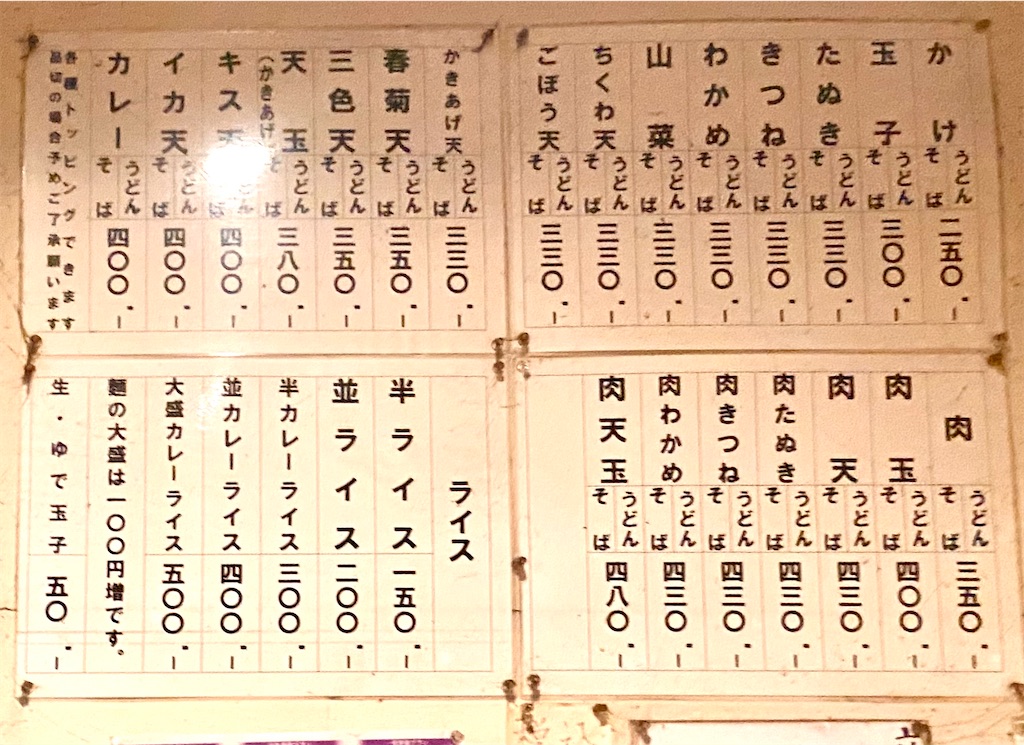 かけ うどん そば 二五〇.ー
玉子 うどん そば 三〇〇.ー
たぬき うどん そば 三三〇.ー
きつね うどん そば 三三〇.ー
わかめ うどん そば 三三〇.ー
山菜 うどん そば 三三〇.ー
ちくわ天 うどん そば 三三〇.ー
ごぼう天 うどん そば 三三〇.ー
かきあげ天 うどん そば 三三〇.ー
春菊天 うどん そば 三五〇.ー
三色天 うどん そば 三五〇.ー
天玉 (かきあげ うどん そば 三八〇.ー
キス天 うどん そば 四〇〇.ー
イカ天 うどん そば 四〇〇.ー
カレー うどん そば 四〇〇.ー
各種トッピングできます
品切の場合予めご了承願います
肉 うどん そば 三五〇.ー
肉玉 うどん そば 四〇〇.ー
肉天 うどん そば 四三〇.ー
肉たぬき うどん そば 四三〇.ー
肉きつね うどん そば 四三〇.ー
肉わかめ うどん そば 四三〇.ー
肉天玉 うどん そば 四八〇.ー
ライス
半ライス 一五〇.ー
並ライス 二〇〇.ー
半カレーライス 三〇〇.ー
並カレーライス 四〇〇.ー
大盛カレーライス 五〇〇.ー
麺の大盛は一〇〇円増です。
生・ゆで玉子 五〇.ー